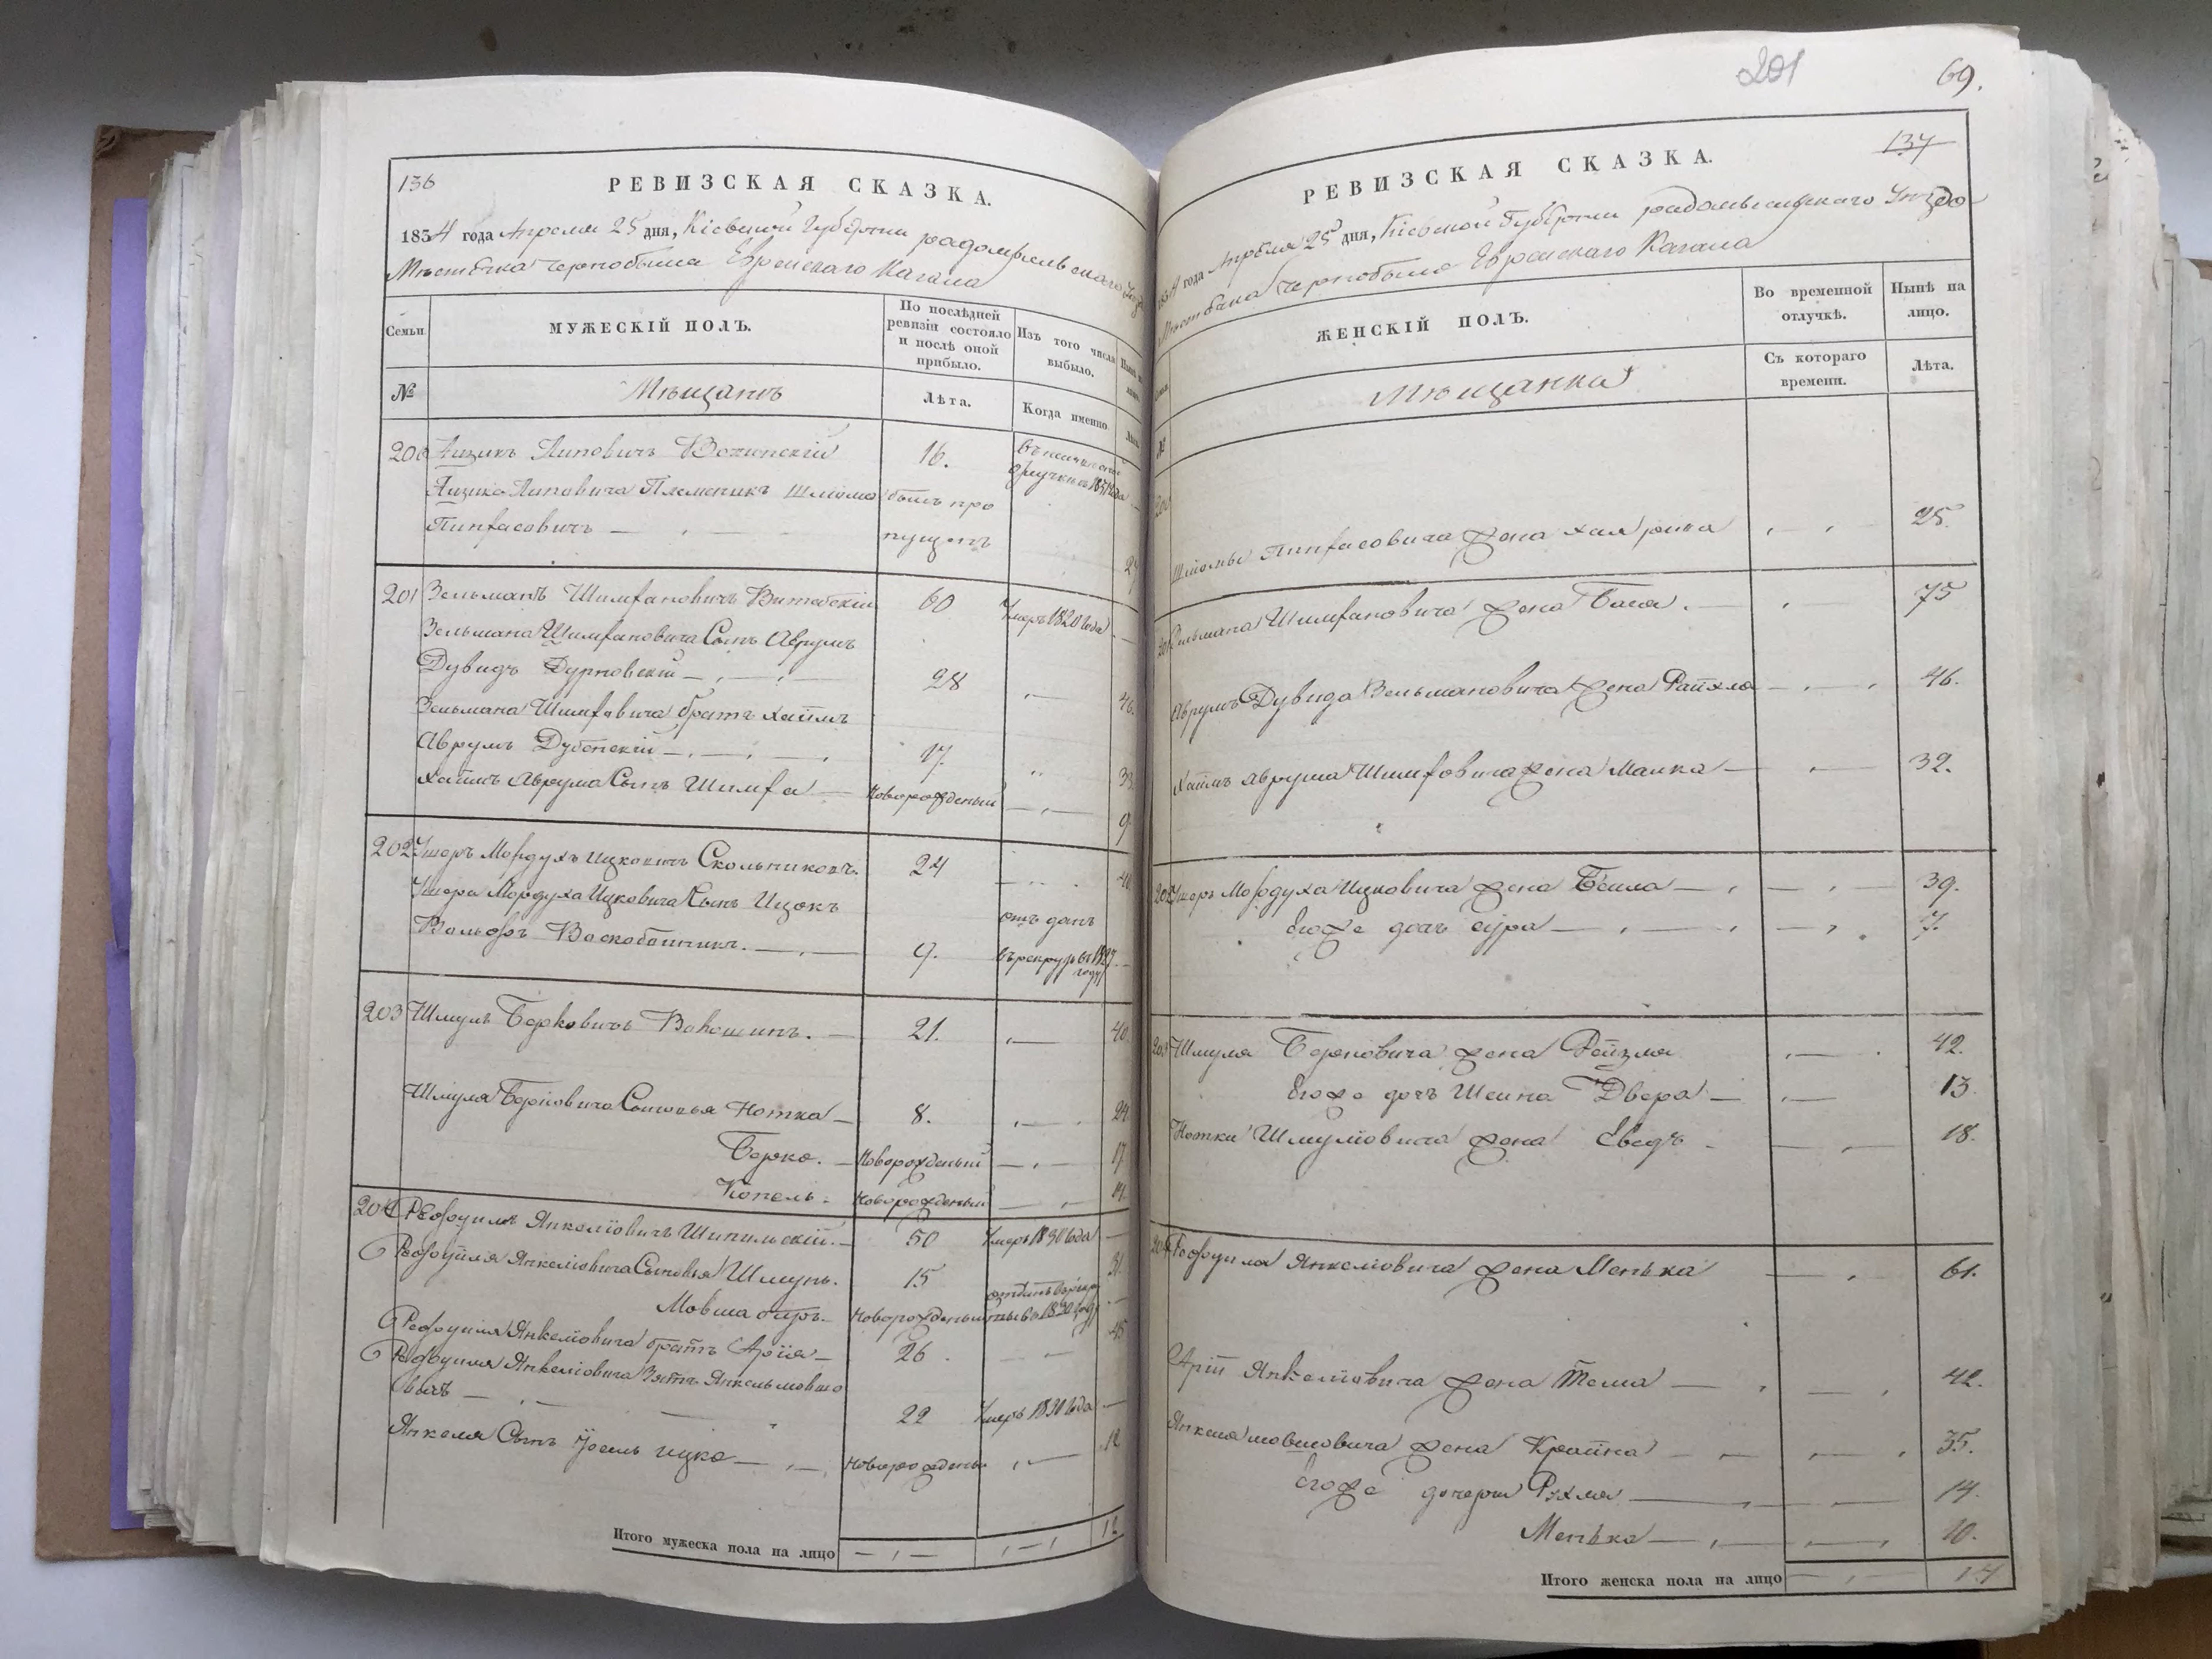 136
РЕВИЗСКАЯ СКАЗКА.
1834 года Апреля 25 дня, Кіевской Губерніи радомысльскаго
Мѣстечка Чернобыля Еврейскаго Кагала
Семьи
МУЖЕСКІЙ ПОЛЪ.
По послѣдней ревизіи состояло и послѣ оной прибыло.
Изъ того числа выбыло.
№
Мѣщанъ
Лѣта.
Когда именно.
200 Аицикъ Липовичъ 16.
Аицика Липовича Племеникъ Шлиома былъ про
Пинхасовичъ — пущенъ
201 Зельманъ Шимхановичъ Витебскій 60 Умеръ 1820 года
Зельмана Шимхановича Сынъ Аврумъ
Дувидъ 28 46.
Зельмана Шимховича братъ Хаимъ
Аврумъ Дубенскій 17. 33
Хаимъ Аврума Сынъ Шимха — Новорожденый — 9
202 Ушеръ Мордухъ Ицковичъ Скольниковъ. 24 40
Ушера Мордуха Ицковича Сынъ Ицокъ отъ данъ
Вольфъ Воскобойникъ. — 9. въ рекруты 1827 году
203 Шмуль Берковичъ Волошинъ. — 21. — 40
Шмуля Берковича Сыновья Нотка — 8. 24
Берко. — Новорожденый — 17
Копель. Новорожденый — 14
204 Рефуилъ Янкеліовичъ Шипильскій. — 50 Умеръ 1830 года —
Рефуиля Янкеліовича Сыновья Шмуль. 15 31
Мовша Новорожденый
Рефуиля Янкеліовича братъ Арія — 26 45
Рефуиля Янкеліовича Зять Янкель мовшо
вичъ — 22 Умеръ 1831 года —
Янкеля Сынъ Іосель ицко — Новорожденый 12
Итого мужеска пола на лицо 12
201
69.
137
РЕВИЗСКАЯ СКАЗКА.
1834 года Апрѣля 25 дня, Кіевской Губерніи радомысльскаго Уѣзда
Мѣстечка Чернобыля Еврейскаго Кагала
ЖЕНСКІЙ ПОЛЪ.
Во временной отлучкѣ.
Нынѣ на лицо.
№
Мѣщанка
Съ котораго времени.
Лѣта.
200
Шліомы Пинхасовича жена хая 25.
201 Зельмана Шимхановича жена Бася. — 75
Аврумъ Дувида Зельмановича жена Райхля — 46.
Хаимъ аврума Шимховича жена Малка — 32.
202 Ушеръ Мордуха Ицковича жена Бейла — 39.
Его же дочь Сура — 7.
203 Шмуля Берковича жена Рейзля 42.
Его же дочь Шейна Двера — 13.
Нотки Шмуліовича жена 18.
204 Рефуила Янкеліовича жена Менька — 61.
Арій Янкеліовича жена Тема — 42.
Янкеля мовшовича жена Крайна — 35.
Его же дочери Рухля — 14.
Менька — 10.
Итого женска пола на лицо 14